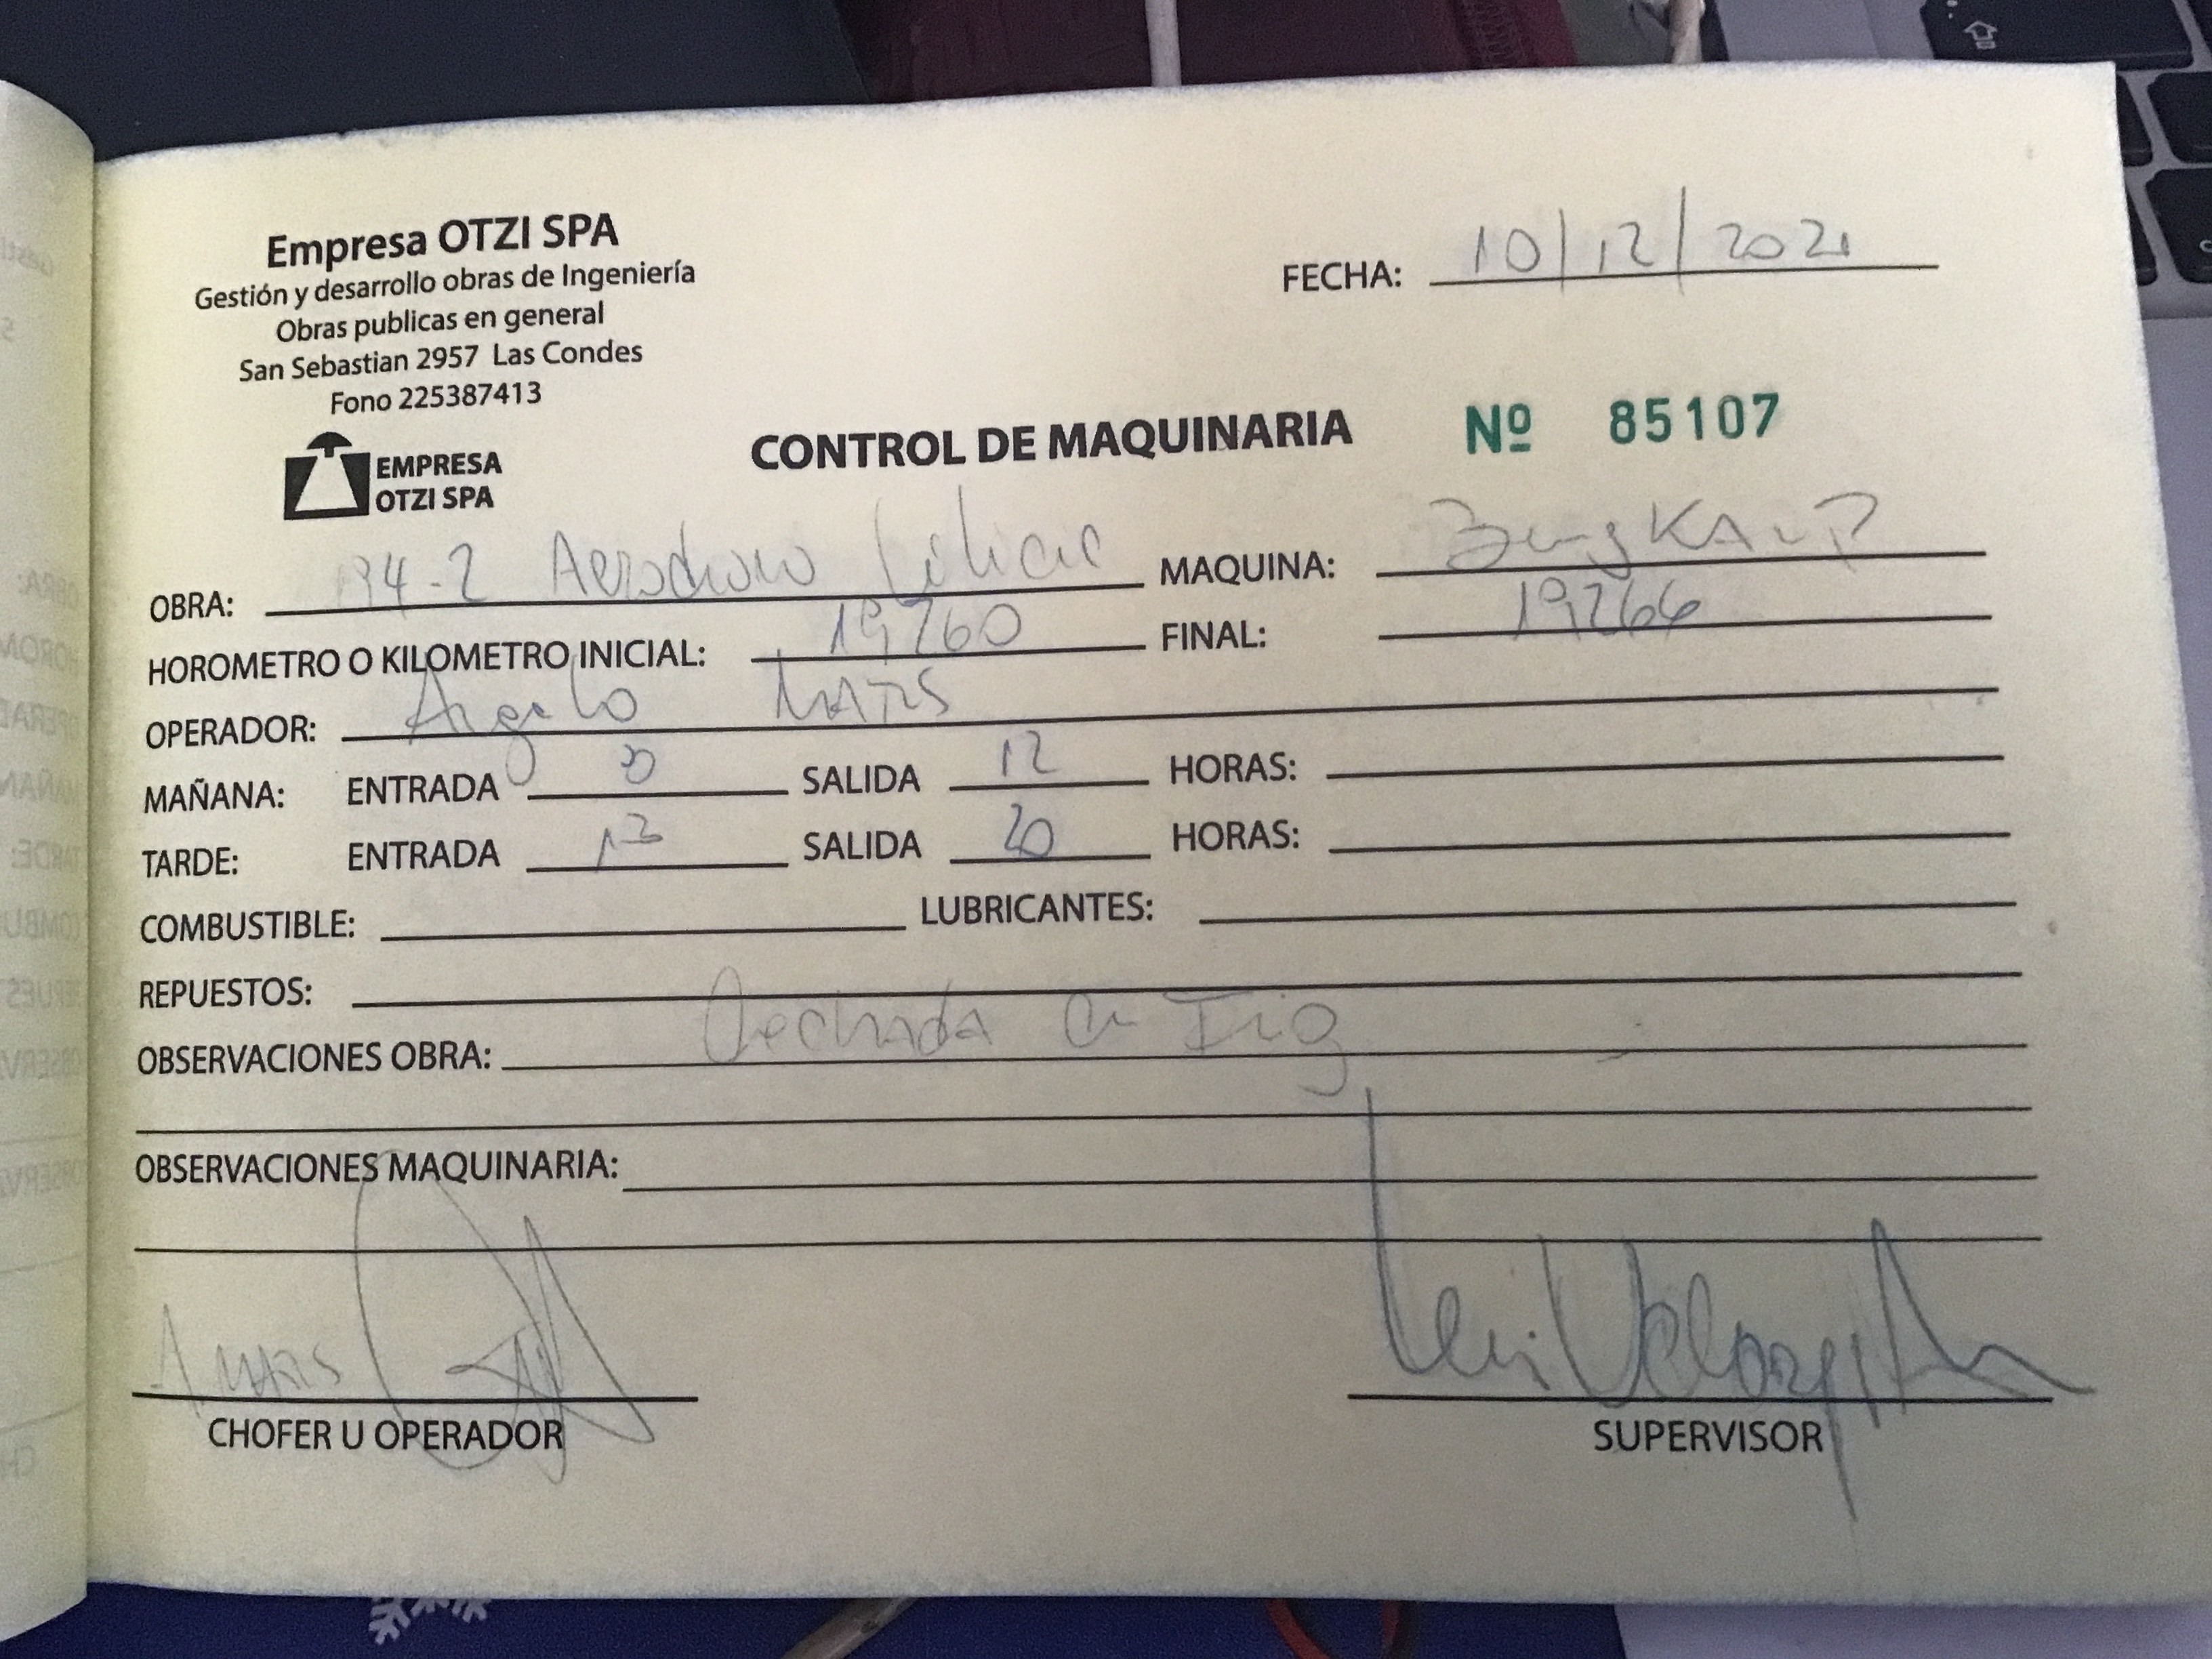 Empresa OTZI SPA
Gestión y desarrollo obras de Ingeniería
Obras publicas en general
San Sebastian 2957 Las Condes
Fono 225387413
EMPRESA
OTZI SPA
FECHA: 10/12/2021
CONTROL DE MAQUINARIA Nº 85107
OBRA: 94-2 MAQUINA:
HOROMETRO O KILOMETRO INICIAL: 19260 FINAL: 19266
OPERADOR: Angelo
MAÑANA: ENTRADA 8 SALIDA 12 HORAS:
TARDE: ENTRADA 13 SALIDA 20 HORAS:
COMBUSTIBLE: LUBRICANTES:
REPUESTOS:
OBSERVACIONES OBRA:
OBSERVACIONES MAQUINARIA:
CHOFER U OPERADOR
SUPERVISOR